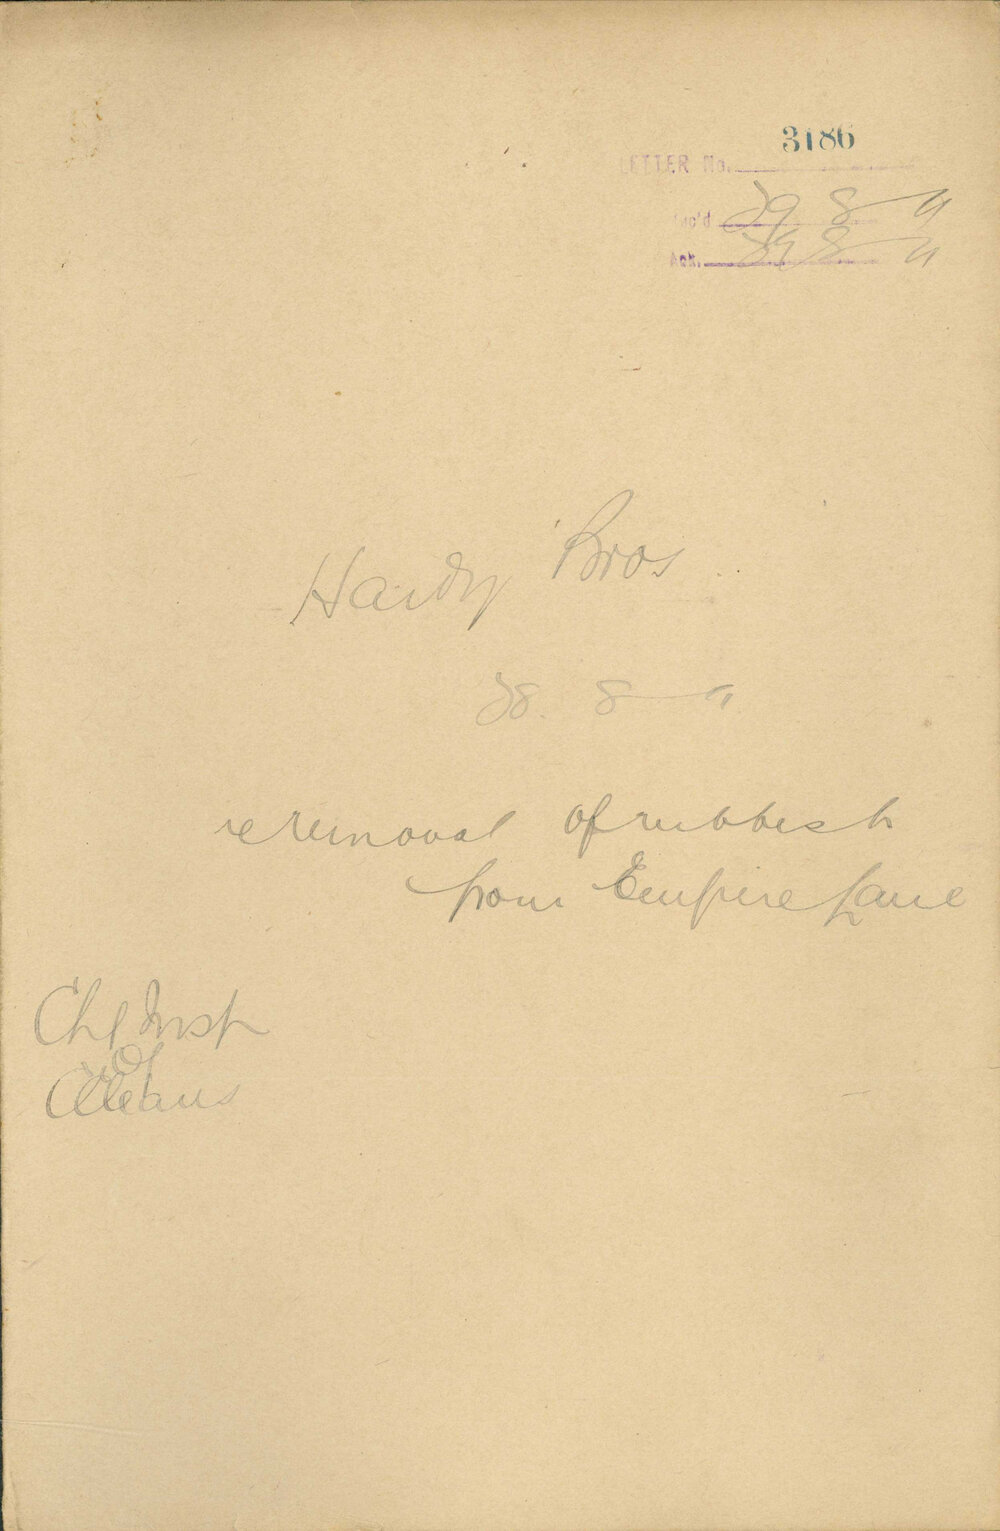 3186
LETTER No.
Rec'd 29 8 11
Ack. 29 8 11
Hardy Bros
28. 8 11
re removal of rubbish
from Empire Lane
Chf Insp
of
Cleans